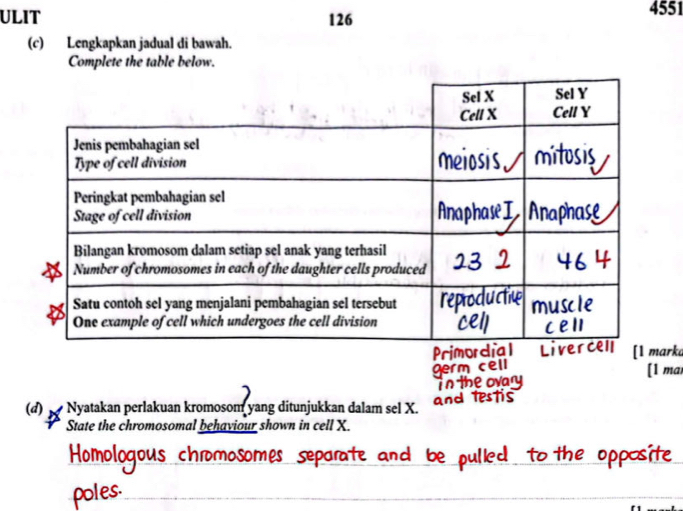 ULIT 126 4551
(c) Lengkapkan jadual di bawah.
Complete the table below.
Sel X Sel Y
Cell X Cell Y
Jenis pembahagian sel
Type of cell division
meiosis mitosis
Peringkat pembahagian sel
Stage of cell division
Anaphase I Anaphase
Bilangan kromosom dalam setiap sel anak yang terhasil
Number of chromosomes in each of the daughter cells produced
23 2 46 4
Satu contoh sel yang menjalani pembahagian sel tersebut
One example of cell which undergoes the cell division
reproductive muscle
cell cell
Primordial Liver cell [1 marka
germ cell [1 mar
in the ovary
and testis
?
(d) Nyatakan perlakuan kromosom yang ditunjukkan dalam sel X.
State the chromosomal behaviour shown in cell X.
Homologous chromosomes separate and be pulled to the opposite
poles.